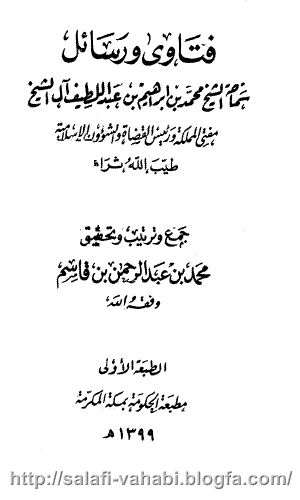 فتاوى ورسائل
سماحة الشيخ محمد بن إبراهيم بن عبد اللطيف آل الشيخ
مفتي المملكة ورئيس القضاة والشؤون الإسلامية
طيب الله ثراه
جمع وترتيب وتحقيق
محمد بن عبد الرحمن بن قاسم
وفقه الله
الطبعة الأولى
مطبعة الحكومة بمكة المكرمة
١٣٩٩ هـ
http://salafi-vahabi.blogfa.com/